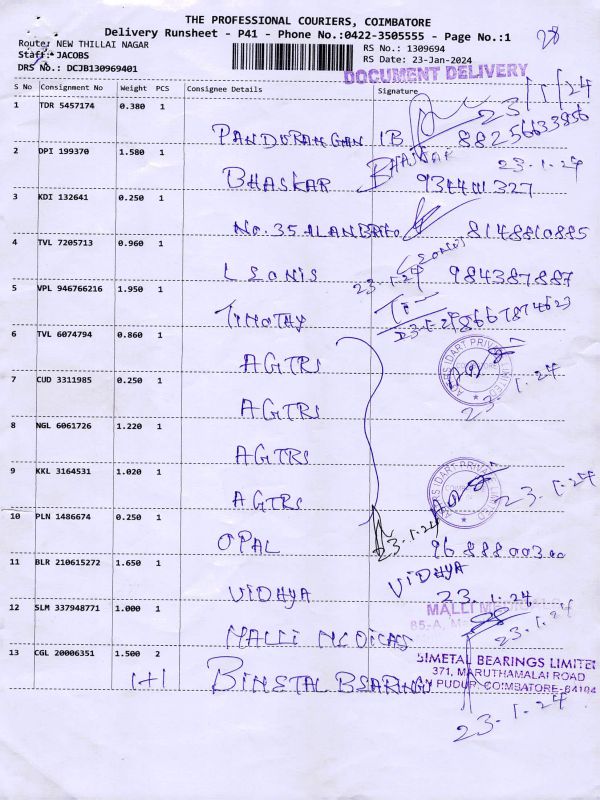 THE PROFESSIONAL COURIERS, COIMBATORE
Delivery Runsheet - P41 - Phone No.:0422-3505555 - Page No.:1
28
Route: NEW THILLAI NAGAR
RS No.: 1309694
Staff: JACOBS
RS Date: 23-Jan-2024
DRS No.: DCJB130969401
DOCUMENT DELIVERY
S No Consignment No Weight PCS Consignee Details Signature
1 TDR 5457174 0.380 1
PANDURANGAN IB 88256633856
2 DPI 199370 1.580 1
23-1-24
BHASKAR
3 KDI 132641 0.250 1
No. 35 8148810885
4 TVL 7205713 0.960 1
LEONIS 23-1-24 984387887
5 VPL 946766216 1.950 1
TIMOTHY 23-1-24
6 TVL 6074794 0.860 1
AGTRS
7 CUD 3311985 0.250 1
23-1-24
AGTRS
8 NGL 6061726 1.220 1
AGTRS
9 KKL 3164531 1.020 1
23-1-24
AGTRS
10 PLN 1486674 0.250 1
OPAL 23-1-24
11 BLR 210615272 1.650 1
VIDHYA
VIDHYA 23-1-24
12 SLM 337948771 1.000 1
MALLI
85-A,
23-1-24
MALLI
13 CGL 20006351 1.500 2
BIMETAL BEARINGS LIMITED
371, MARUTHAMALAI ROAD
PUDUR, COIMBATORE-
1+1 BIMETAL BEARINGS
23-1-24